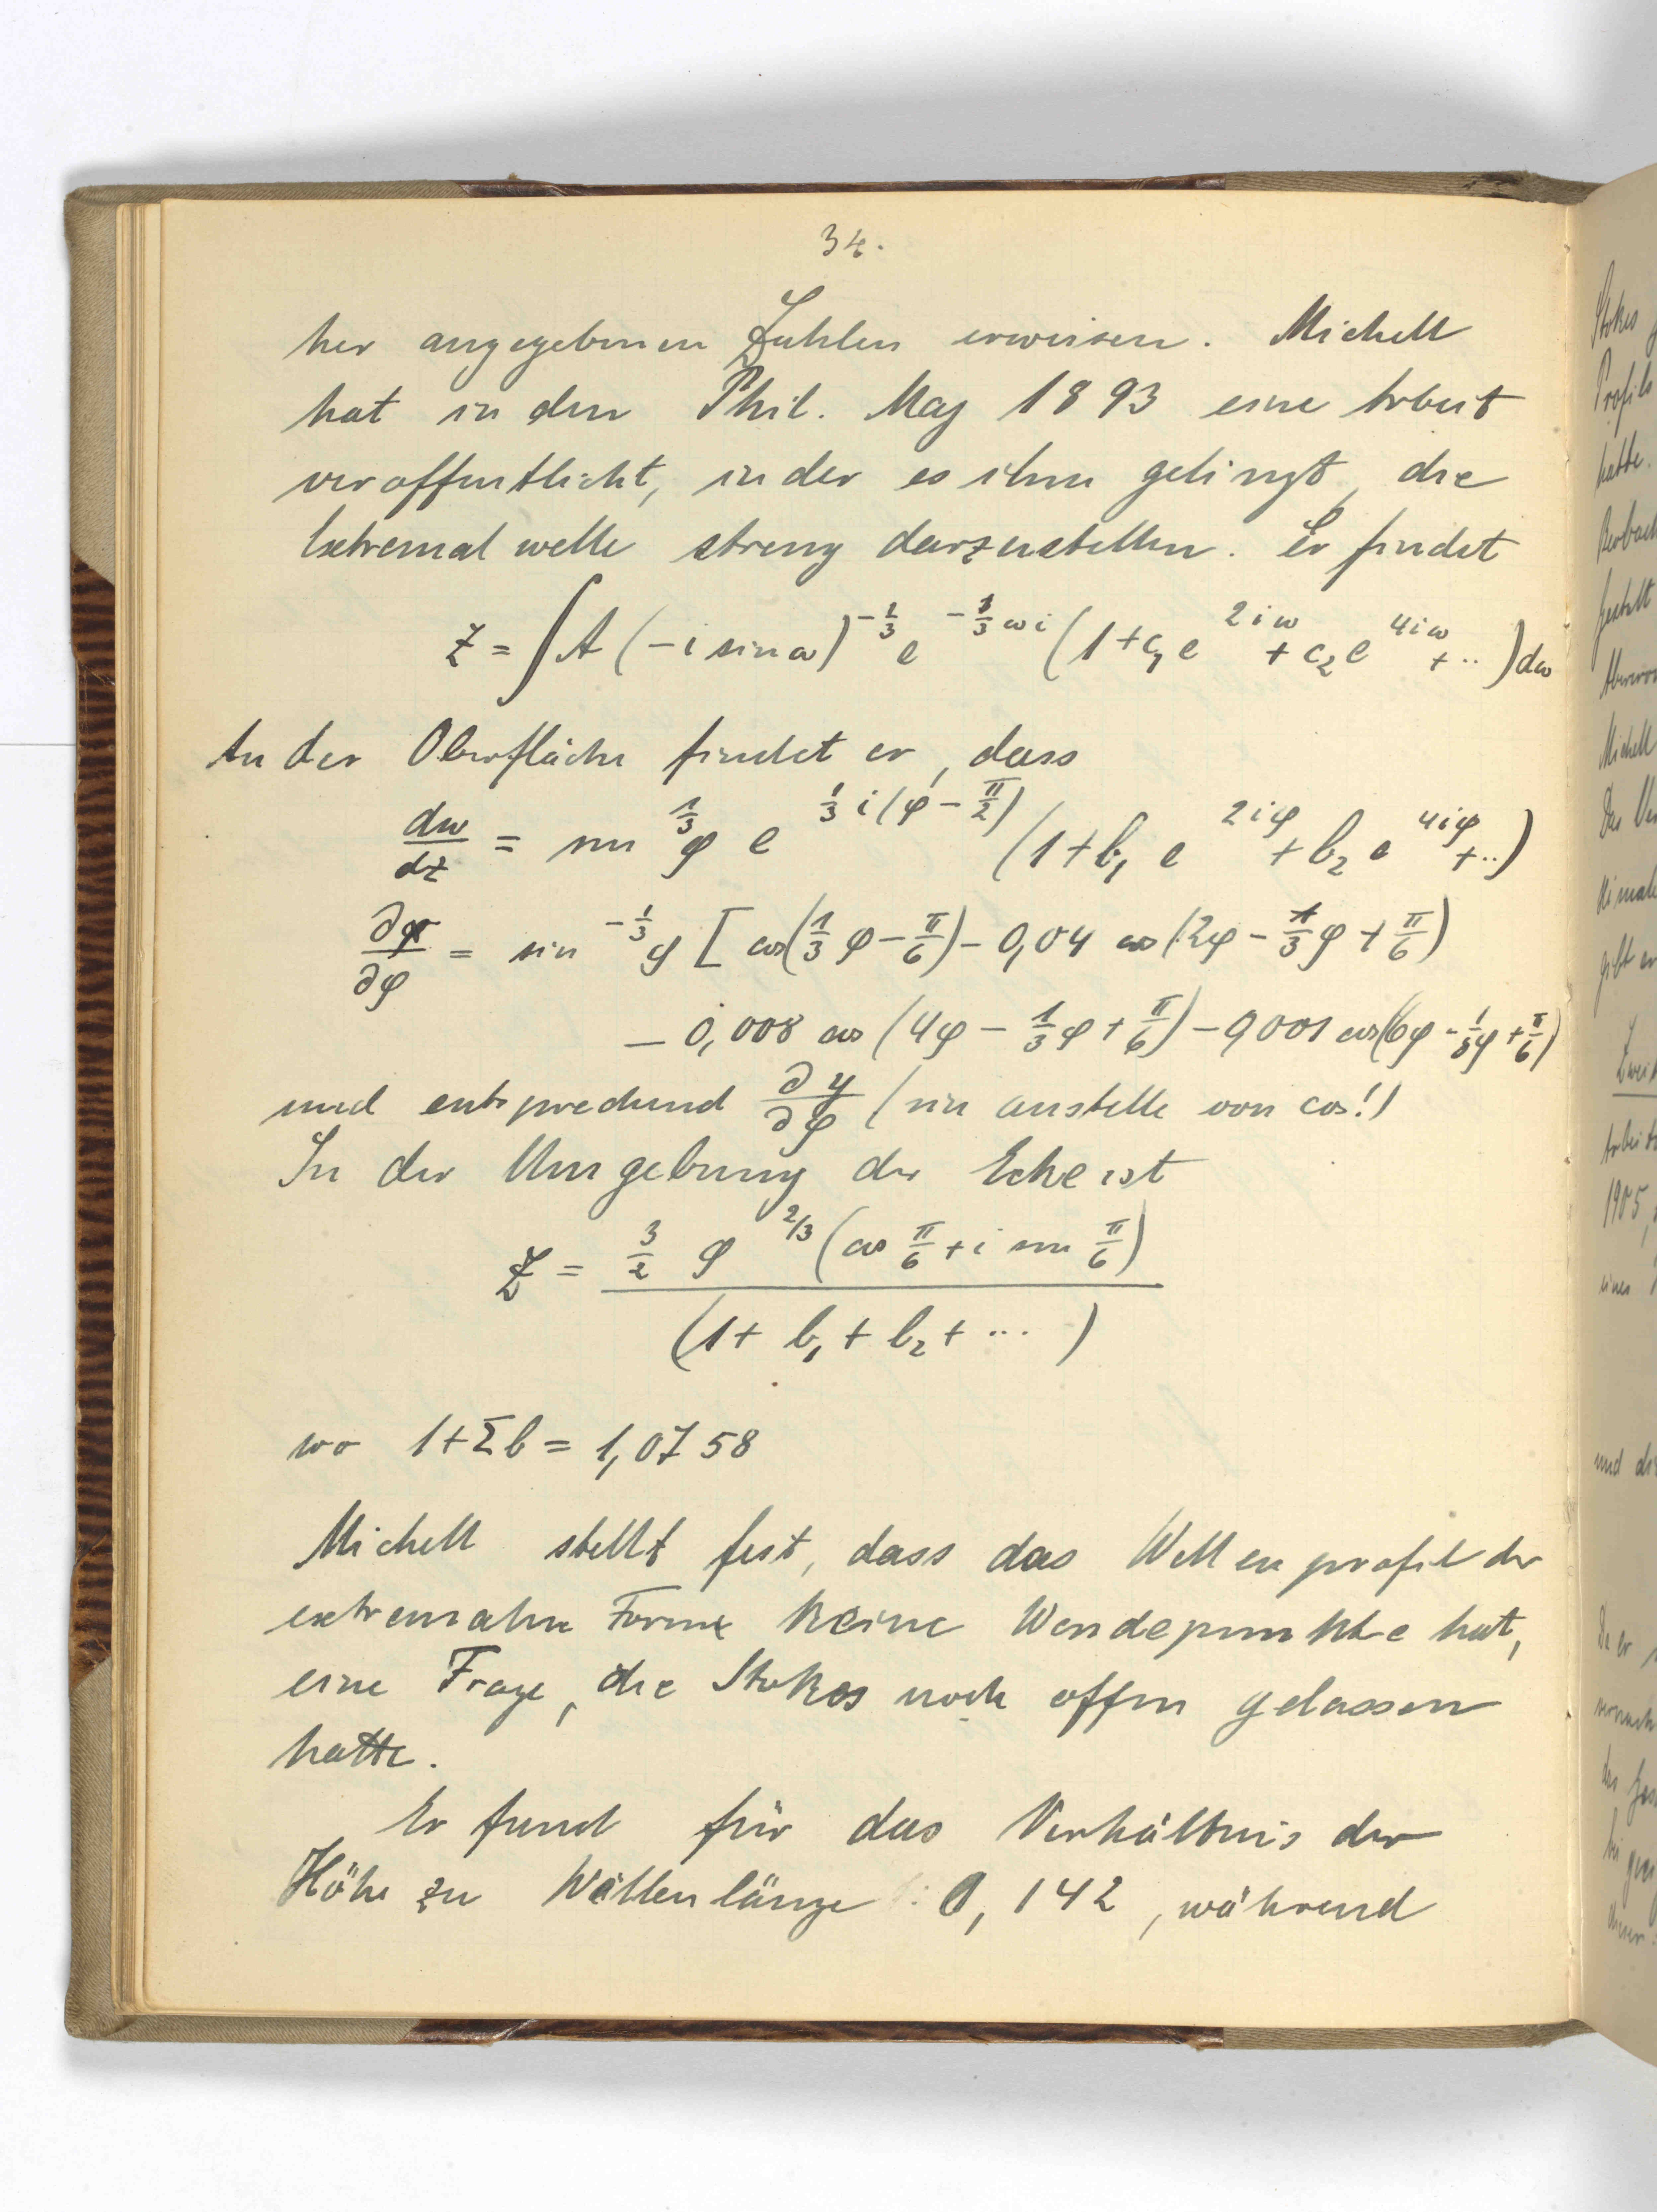 34.
her angegebenen Zahlen erweisen. Michell
hat in den Phil. Mag 1893 eine Arbeit
veröffentlicht, in der es ihm gelingt, die
Extremalwelle streng darzustellen. Er findet
z = ∫ A (-i sin ω)^{-1/3} e^{-1/3 ωi} (1 + c₁ e^{2iω} + c₂ e^{4iω} + ..) dω
An der Oberfläche findet er, dass
dw/dz = sin^{1/3} φ e^{1/3 i(φ - π/2)} (1 + b₁ e^{2iφ} + b₂ e^{4iφ} + ..)
∂x/∂φ = sin^{-1/3} φ [ cos(1/3 φ - π/6) - 0,04 cos(2φ - 1/3 φ + π/6)
- 0,008 cos (4φ - 1/3 φ + π/6) - 0,001 cos(6φ - 1/3 φ + π/6)
und entsprechend ∂y/∂φ (sin anstelle von cos!)
In der Umgebung der Ecke ist
z = 3/2 φ^{2/3} (cos π/6 + i sin π/6)
(1 + b₁ + b₂ + ... )
wo 1 + Σb = 1,0758
Michell stellt fest, dass das Wellenprofil der
extremalen Form keine Wendepunkte hat,
eine Frage, die Stokes noch offen gelassen
hatte.
Er fand für das Verhältnis der
Höhe zu Wellenlänge : 0,142, während
Stokes
Profils
hatte.
Michell
1905,
und die
Da er